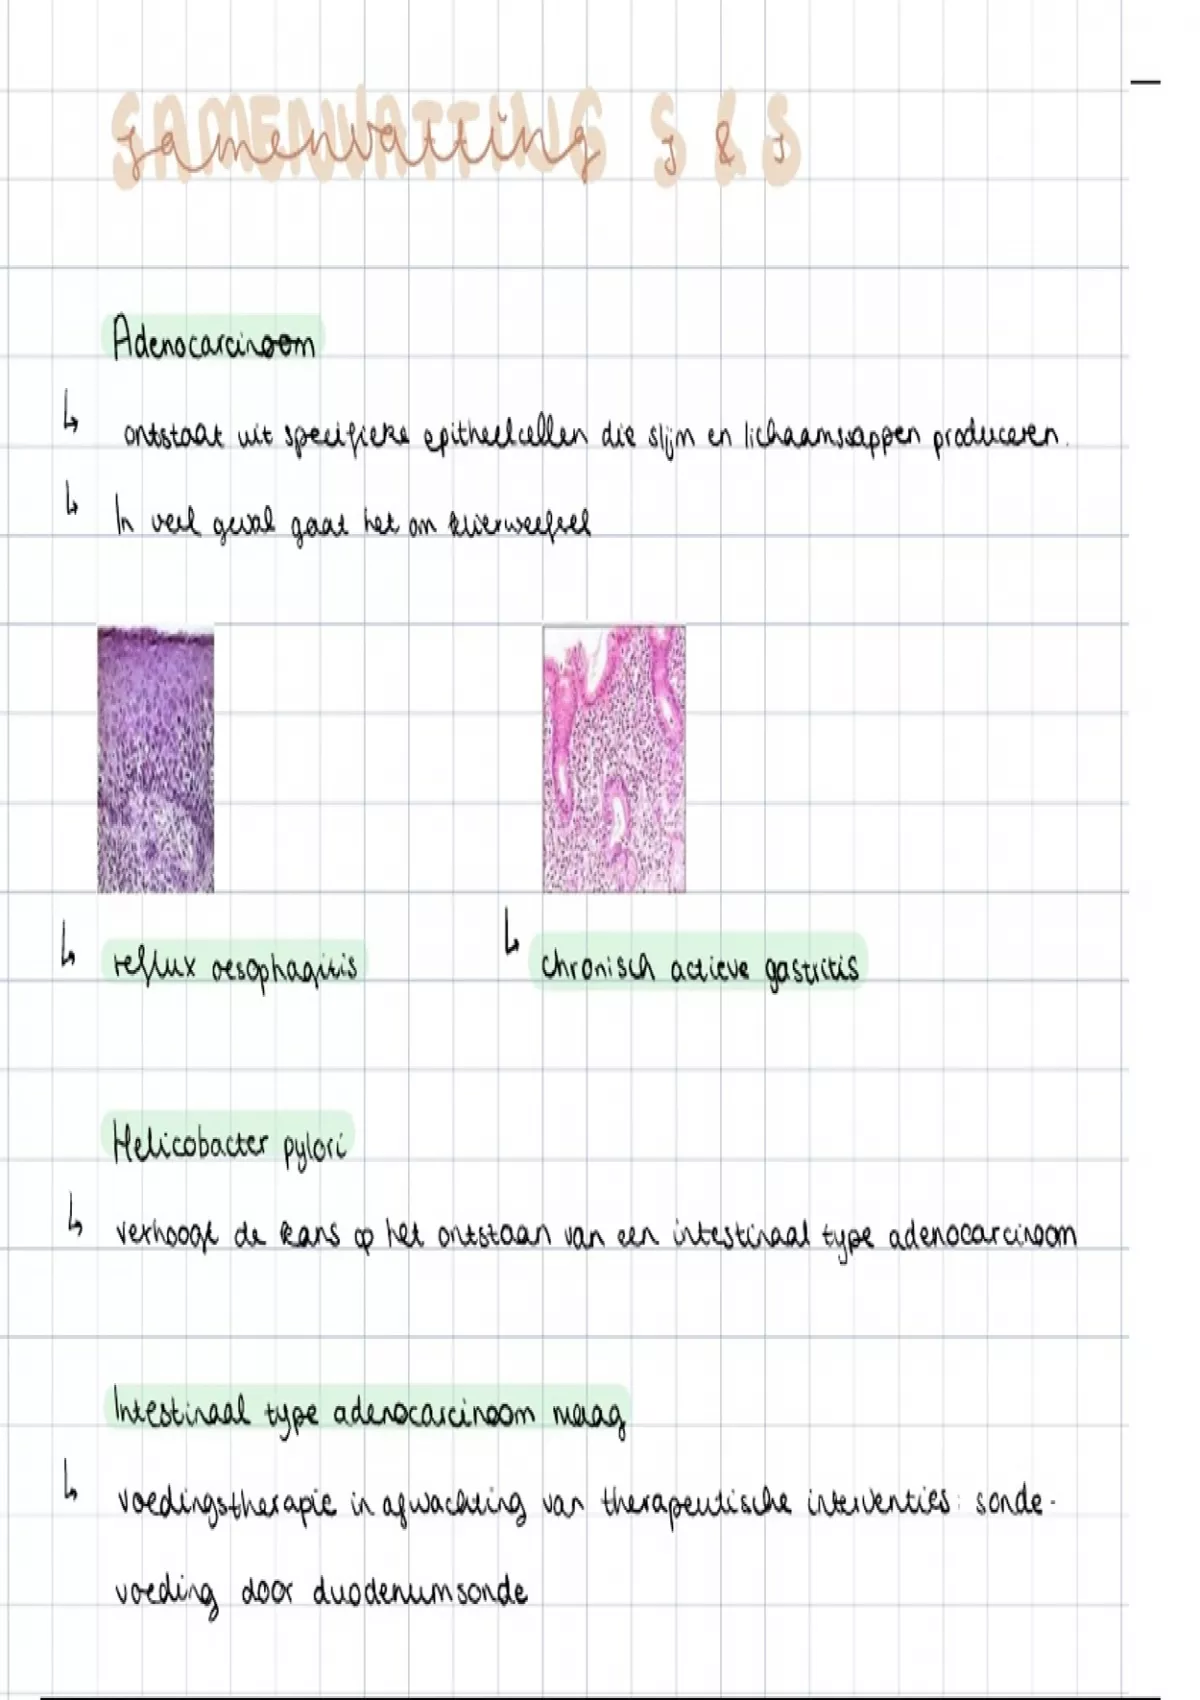 SAMENVATTING S & S
samenvatting s & s
Adenocarcinoom
↳ ontstaat uit specifieke epitheelcellen die slijm en lichaamssappen produceren.
↳ In veel geval gaat het om klierweefsel
↳ reflux oesophagitis ↳ chronisch actieve gastritis
Helicobacter pylori
↳ verhoogt de kans op het ontstaan van een intestinaal type adenocarcinoom
Intestinaal type adenocarcinoom maag
↳ voedingstherapie in afwachting van therapeutische interventies: sonde-
voeding door duodenumsonde